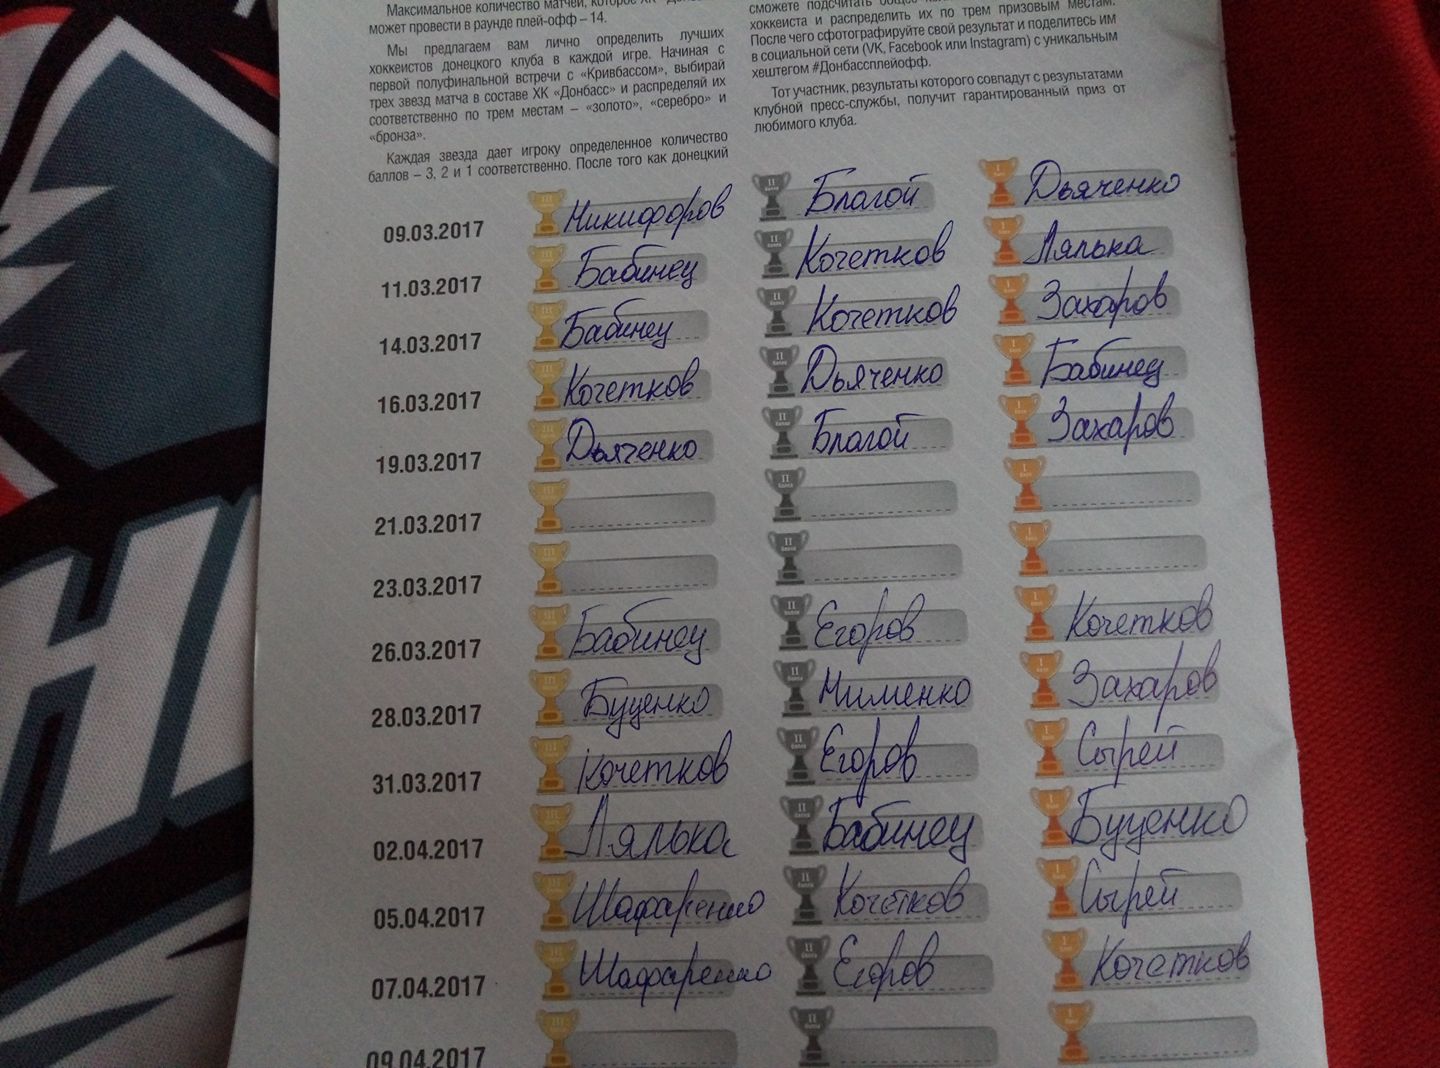 Максимальное количество матчей, которое ХК
может провести в раунде плей-офф – 14.
Мы предлагаем вам лично определить лучших
хоккеистов донецкого клуба в каждой игре. Начиная с
первой полуфинальной встречи с «Кривбассом», выбирай
трех звезд матча в составе ХК «Донбасс» и распределяй их
соответственно по трем местам – «золото», «серебро» и
«бронза».
Каждая звезда дает игроку определенное количество
баллов – 3, 2 и 1 соответственно. После того как донецкий
сможете подсчитать
хоккеиста и распределить их по трем призовым местам.
После чего сфотографируйте свой результат и поделитесь им
в социальной сети (VK, Facebook или Instagram) с уникальным
хештегом #Донбассплейофф.
Тот участник, результаты которого совпадут с результатами
клубной пресс-службы, получит гарантированный приз от
любимого клуба.
09.03.2017 Никифоров Благой Дьяченко
11.03.2017 Бабинец Кочетков Лялька
14.03.2017 Бабинец Кочетков Захаров
16.03.2017 Кочетков Дьяченко Бабинец
19.03.2017 Дьяченко Благой Захаров
21.03.2017
23.03.2017
26.03.2017 Бабинец Егоров Кочетков
28.03.2017 Буценко Нименко Захаров
31.03.2017 Кочетков Егоров Сырей
02.04.2017 Лялька Бабинец Буценко
05.04.2017 Шафаренко Кочетков Сырей
07.04.2017 Шафаренко Егоров Кочетков
09.04.2017